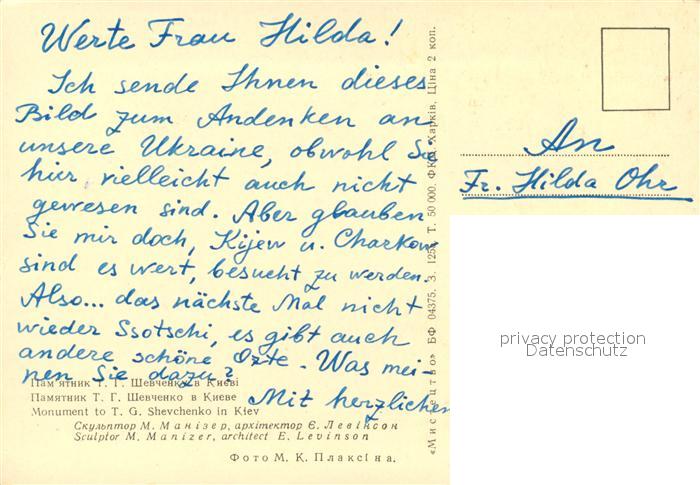 Werte Frau Hilda!
Ich sende Ihnen dieses
Bild zum Andenken an
unsere Ukraine, obwohl Sie
hier vielleicht auch nicht
gewesen sind. Aber glauben
Sie mir doch, Kijew u. Charkow
sind es wert, besucht zu werden.
Also... das nächste Mal nicht
wieder Ssotschi, es gibt auch
andere schöne Orte. Was mei-
nen Sie dazu?
Mit herzlichen
Пам'ятник Т. Г. Шевченку в Києві
Памятник Т. Г. Шевченко в Киеве
Monument to T. G. Shevchenko in Kiev
Скульптор М. Манізер, архітектор Є. Левінсон
Sculptor M. Manizer, architect E. Levinson
Фото М. К. Плаксіна.
«Мистецтво» БФ 04375. З. 125. Т. 50 000. ФКФ. Харків. Ціна 2 коп.
An
Fr. Hilda Ohr
privacy protection
Datenschutz